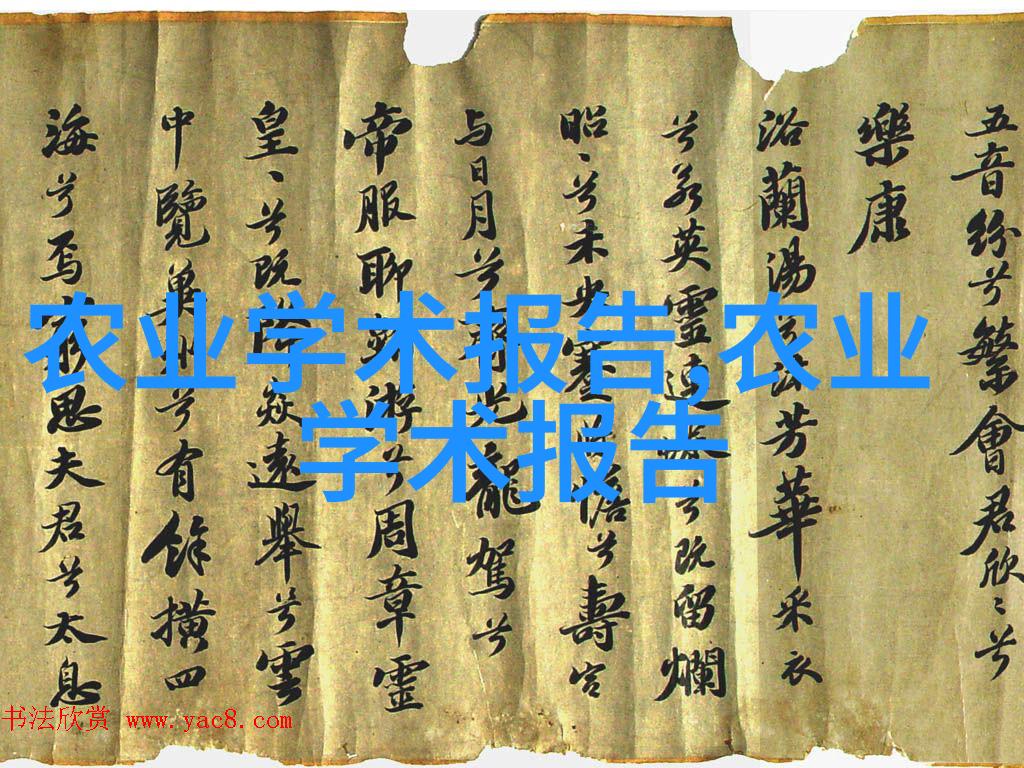 五音紛兮繁會君欣〻兮
樂康
浴蘭湯兮沐芳華采衣
兮若英靈連蜷兮既留爛
昭〻兮未央蹇將憺兮壽宮
与日月兮齊光龍駕兮
帝服聊翱遊兮周章靈
皇〻兮既降猋遠舉兮雲
中覽冀州兮有餘橫四
海兮焉窮思夫君兮太息
农业学术报告,农业
学术报告
书法欣赏 www.yac8.com